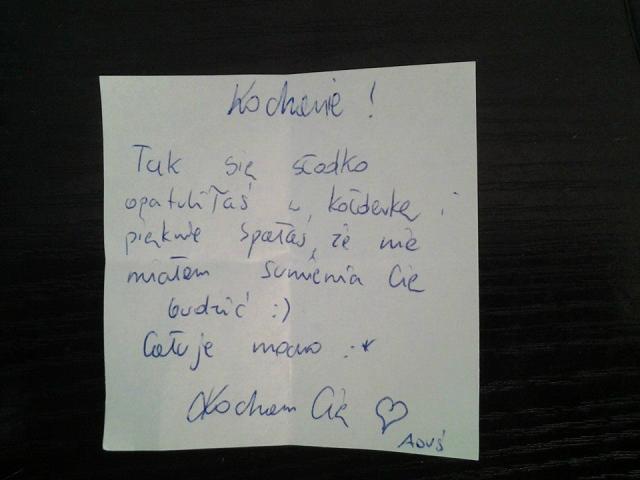 Kochanie!
Tak się słodko
opatuliłaś w kołderkę i
pięknie spałaś, że nie
miałem sumienia Cię
budzić :)
Całuję mocno :*
Kocham Cię ♡
Aduś